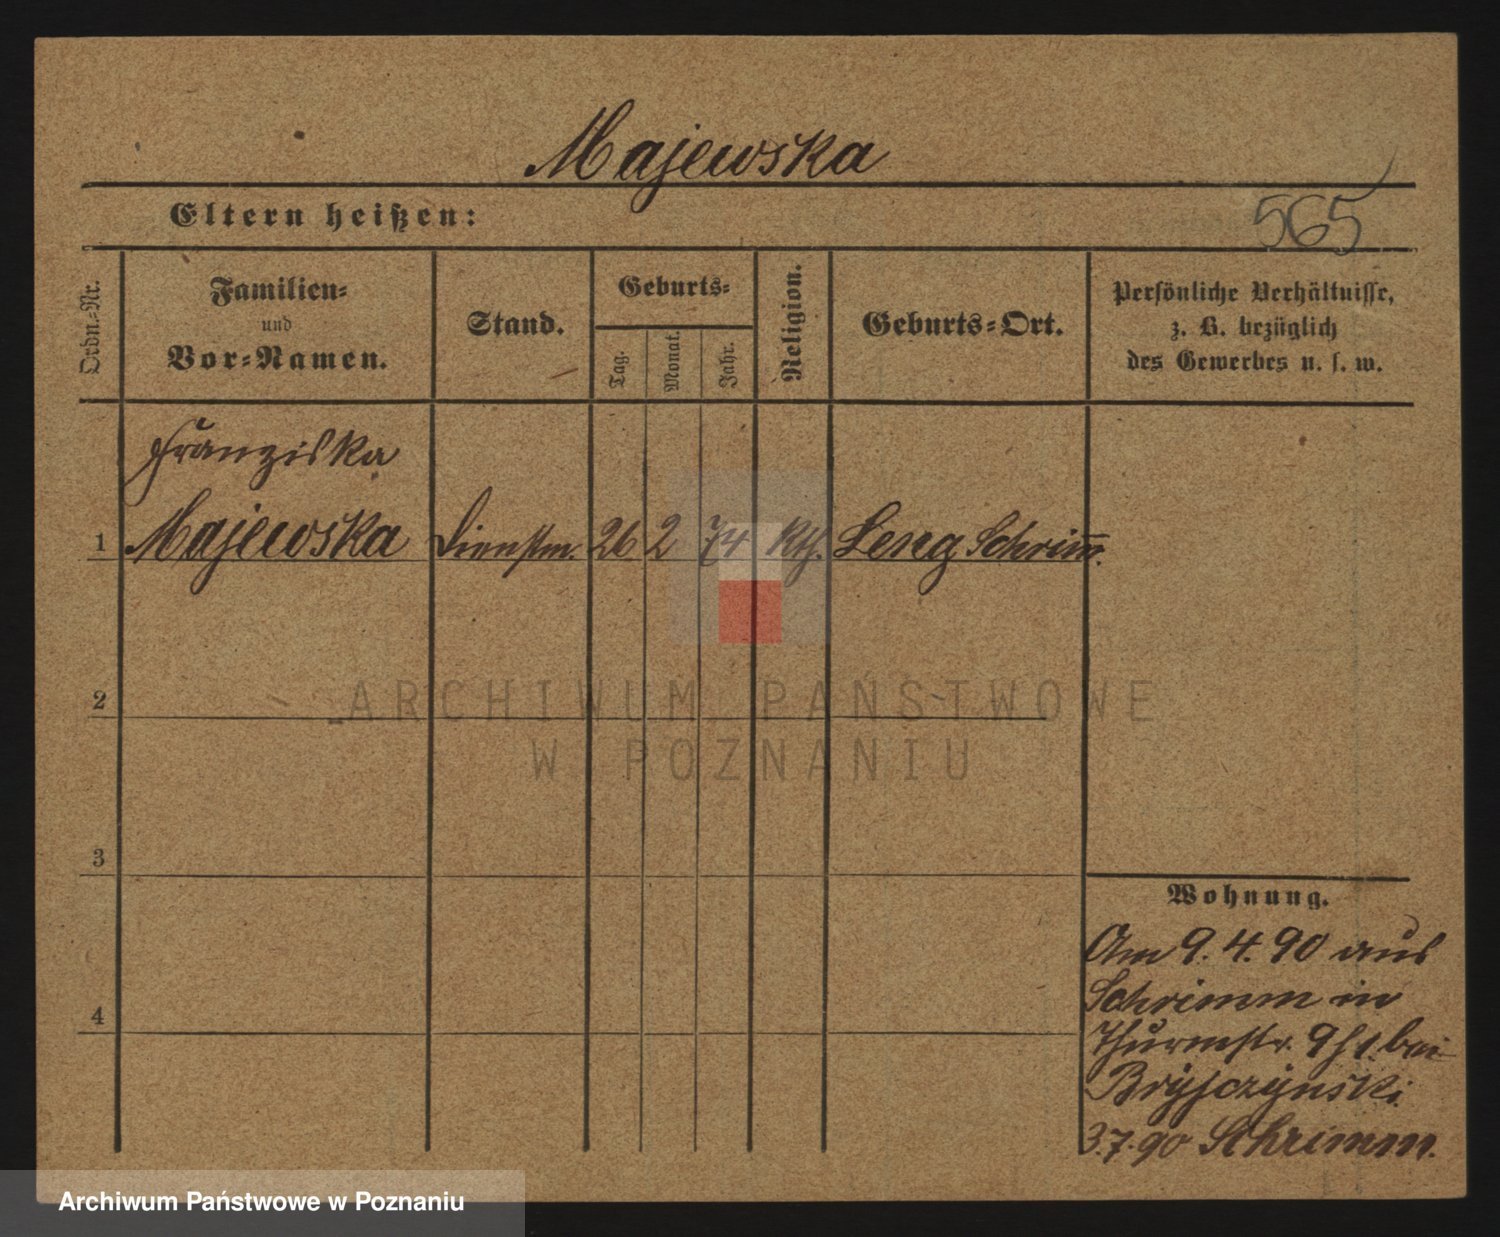 Majewska
Eltern heißen:
565
Ordn.-Nr.
Familien-
und
Vor-Namen.
Stand.
Geburts-
Tag.
Monat.
Jahr.
Religion.
Geburts-Ort.
Persönliche Verhältnisse,
z. B. bezüglich
des Gewerbes u. s. w.
Franziska
1 Majewska Dienstm. 26 2 74 kth. Leng Schrimm.
2
3
4
Wohnung.
Am 9. 4. 90 aus
Schrimm in
Thurmstr. 9 bei
3.7.90 Schrimm.
ARCHIWUM PAŃSTWOWE
W POZNANIU
Archiwum Państwowe w Poznaniu